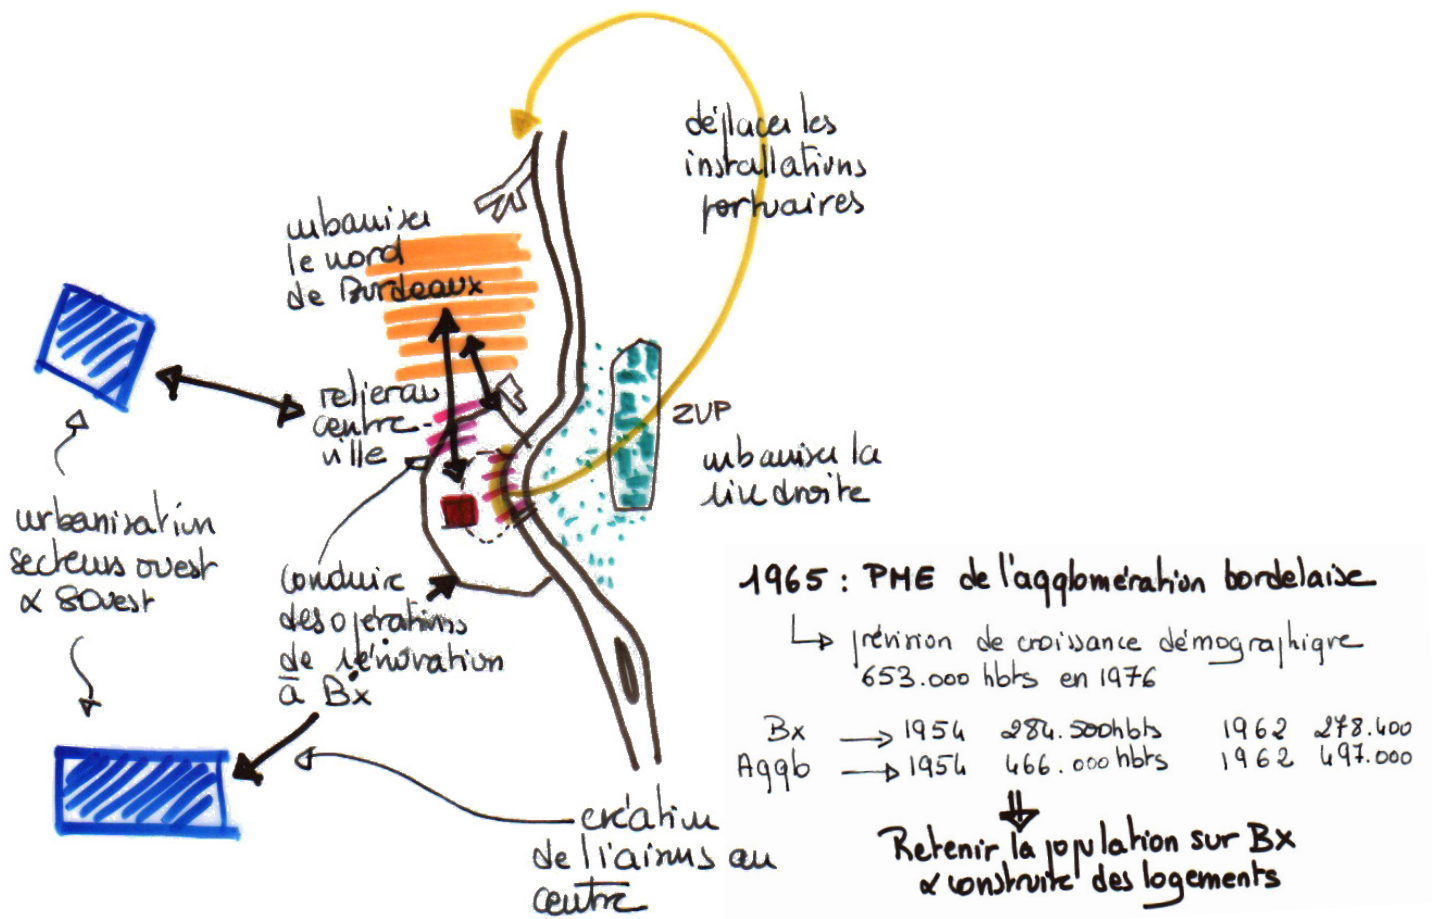 déplacer les
installations
portuaires
urbaniser
le nord
de Bordeaux
relier au
centre-
ville
ZUP
urbaniser la
rive droite
urbanisation
secteurs ouest
& SOuest
conduire
des opérations
de rénovation
à Bx
création
de liaisons au
centre
1965 : PME de l'agglomération bordelaise
prévision de croissance démographique
653.000 hbts en 1976
Bx → 1954 284.500 hbts 1962 278.400
Agglo → 1954 466.000 hbts 1962 497.000
Retenir la population sur Bx
& construire des logements